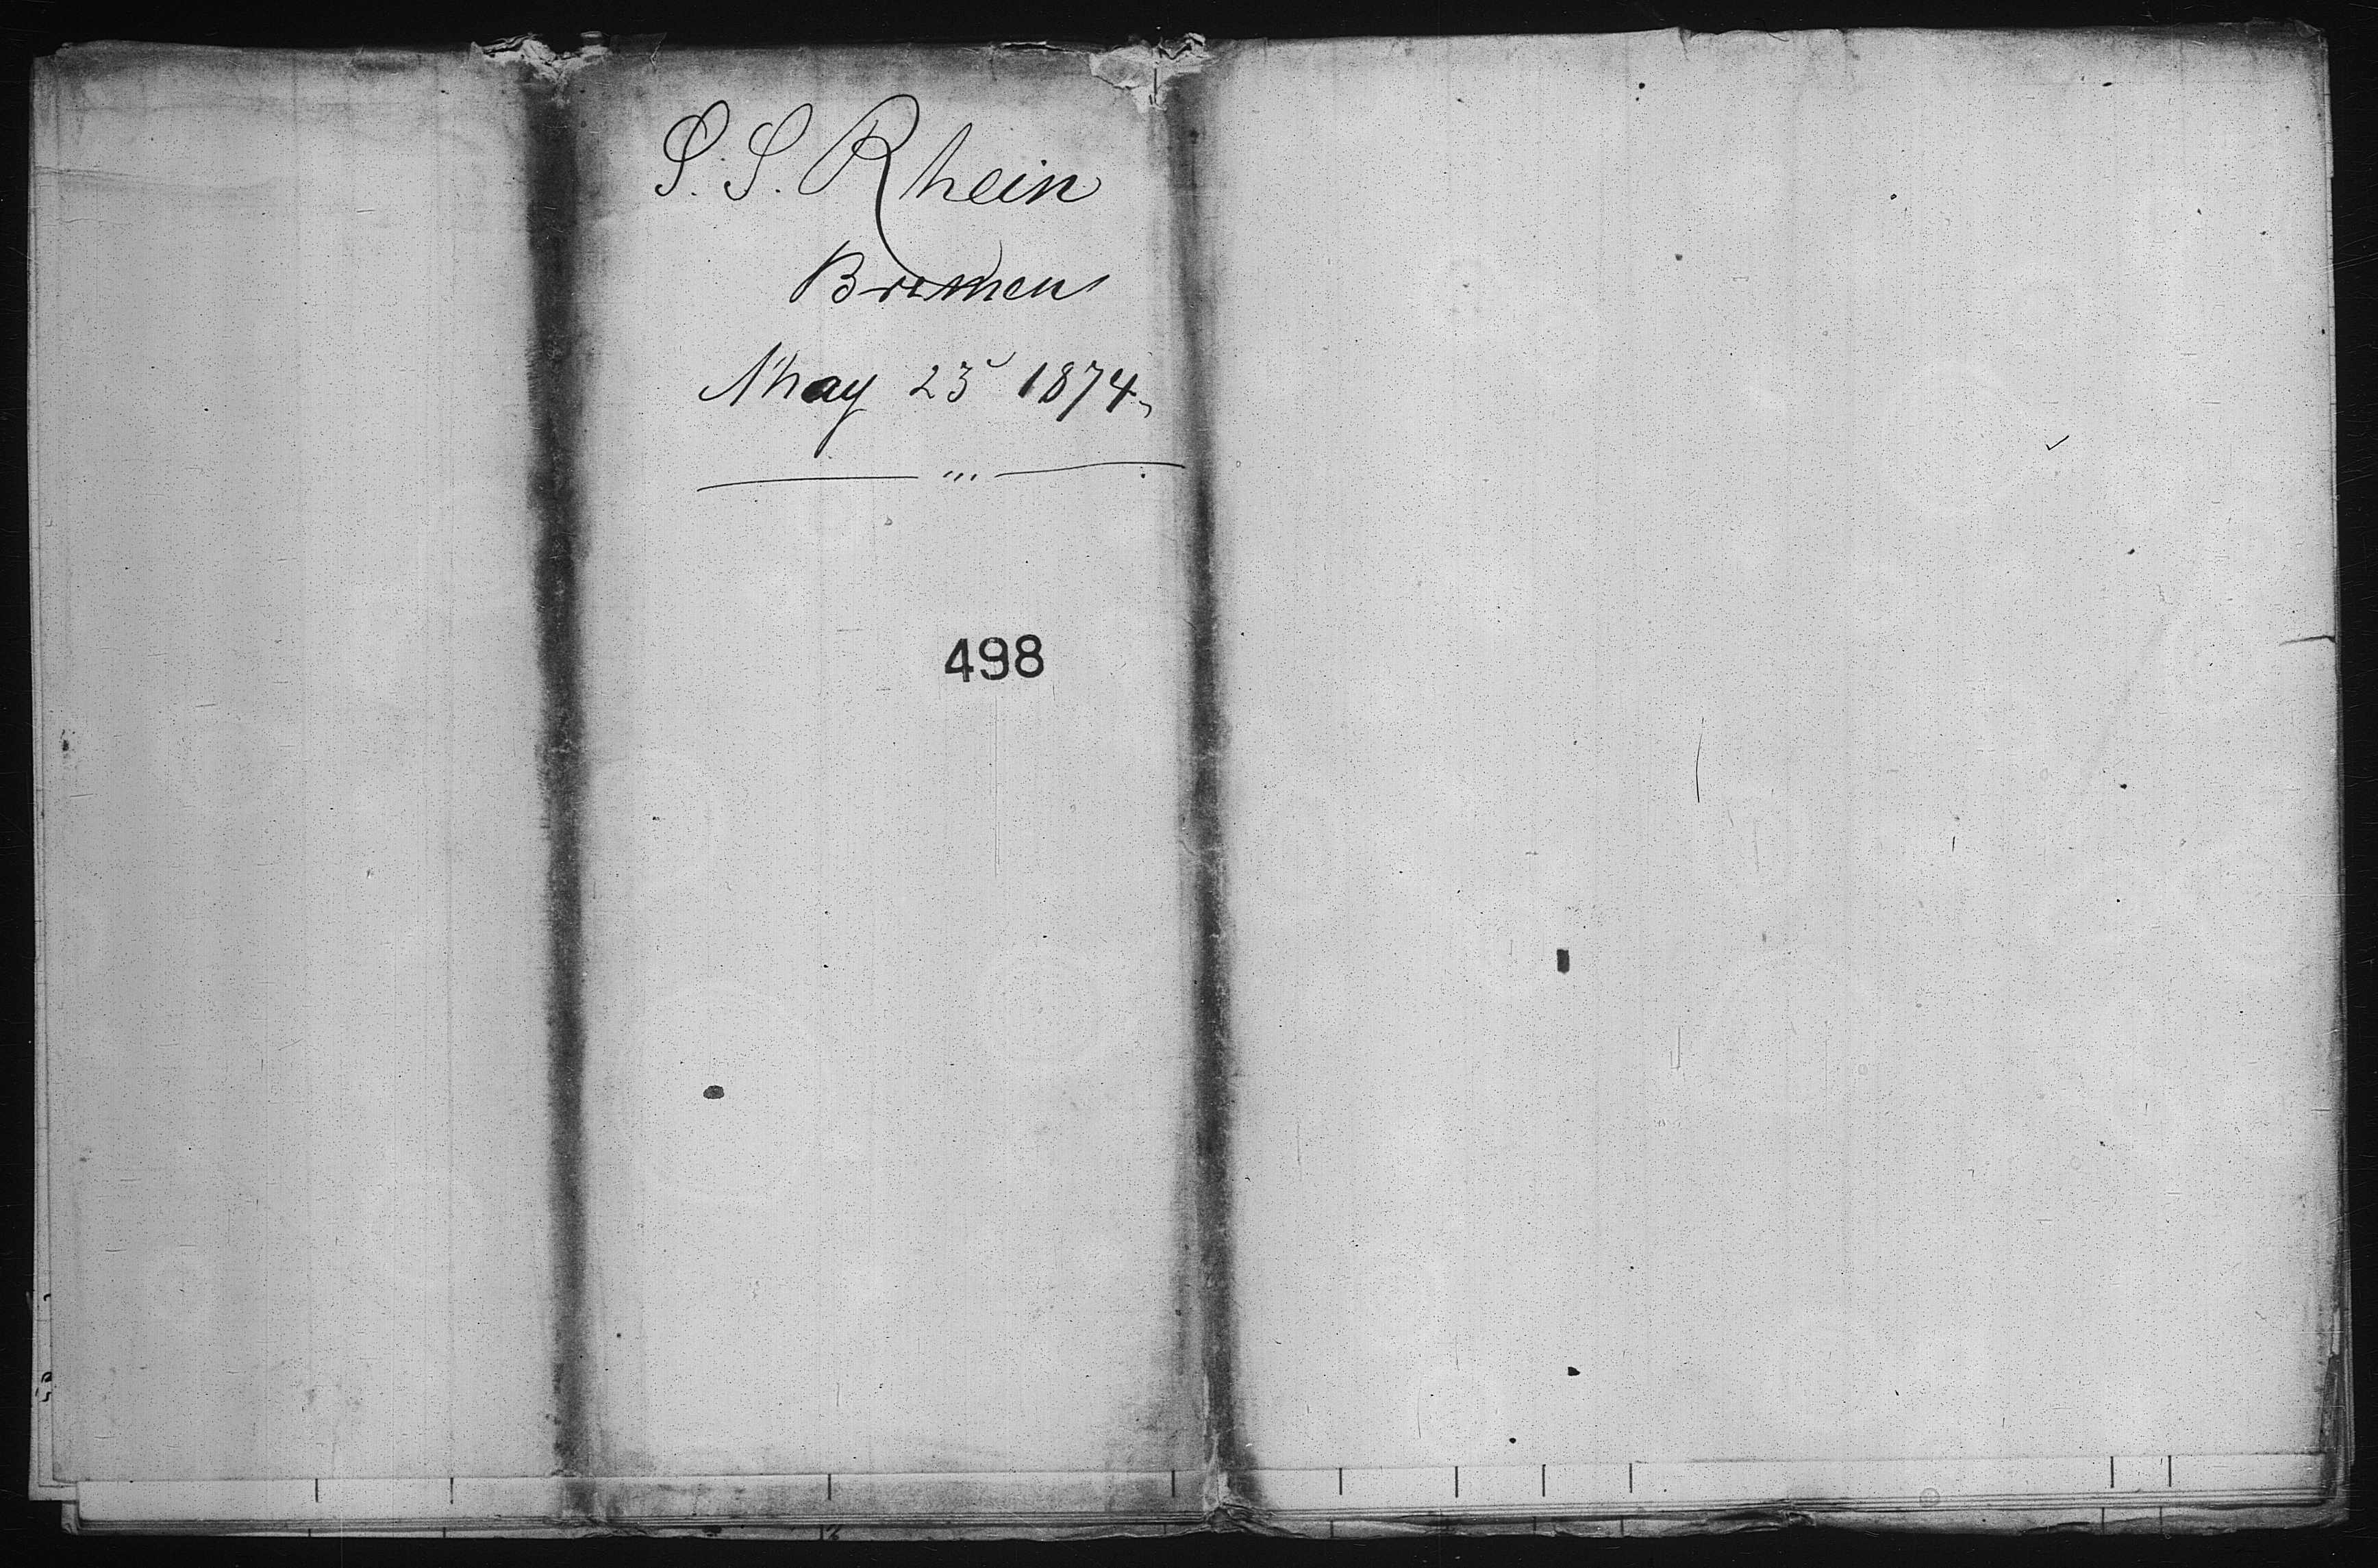 S. S. Rhein
Bremen
May 23 1874
498